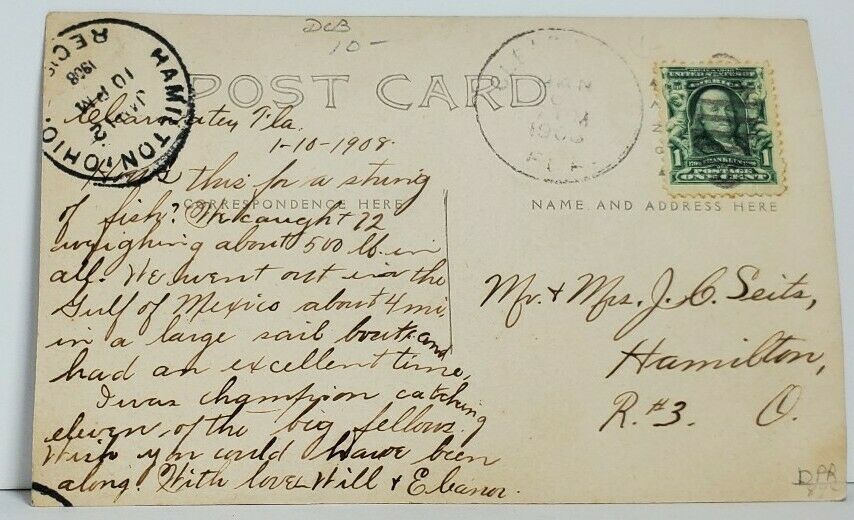 DCB
10-
HAMILTON, OHIO.
JAN 12
10 PM
1908
POST CARD
JAN
1908
FLA
UNITED STATES
FRANKLIN
1 1
POSTAGE
ONE CENT
Clearwater, Fla.
1-10-1908.
this for a string
CORRESPONDENCE HERE
NAME AND ADDRESS HERE
of fish? We caught 72
weighing about 500 lb. in
all. We went out in the
Gulf of Mexico about 4 mi.
in a large sail boat and
had an excellent time,
I was champion catching
eleven of the big fellows.
Wish you could have been
along. With love Will & Eleanor.
Mr. & Mrs. J. C. Seits,
Hamilton,
R. #3. O.